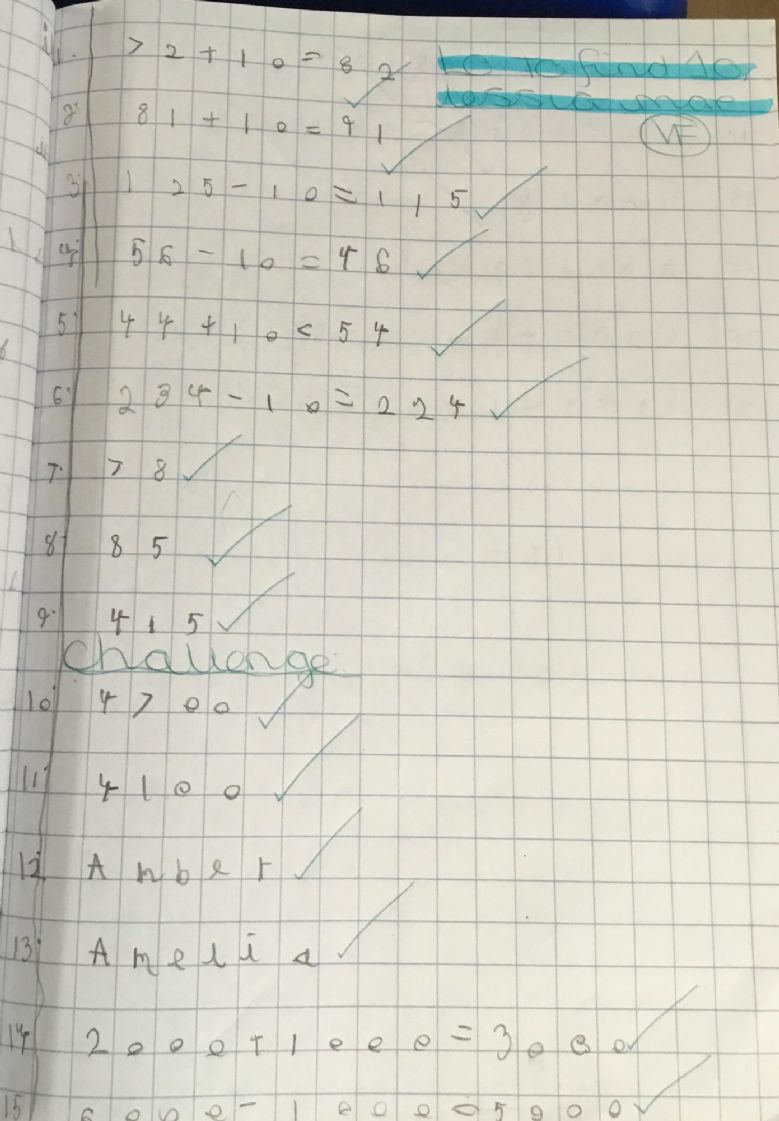 1. 72+10=82
LO To find 10
less & more
VF
2. 81+10=91
3. 125-10=115
4. 56-10=46
5. 44+10<54
6. 234-10=224
7. 78
8. 85
9. 415
Challenge
10. 4700
11. 4100
12. Amber
13. Amelia
14. 2000+1000=3000
15. 6000-1000=5000